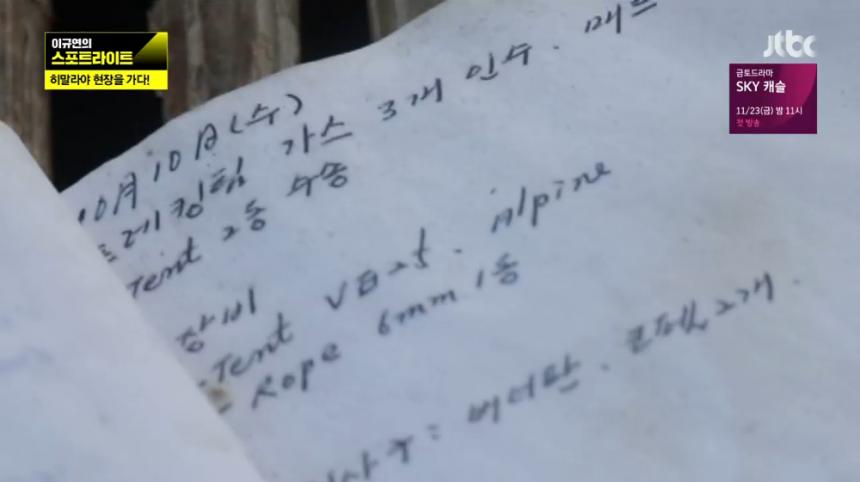 이규연의
스포트라이트
히말라야 현장을 가다!
jtbc
금토드라마
SKY 캐슬
11/23(금) 밤 11시
첫 방송
10月 10日(수)
트레킹팀 가스 3개 인수. 매트
Tent 2동 수송
장비
Tent VE25. Alpine
- Rope 6mm 1동
사주: 버너판. 코펠 2개.